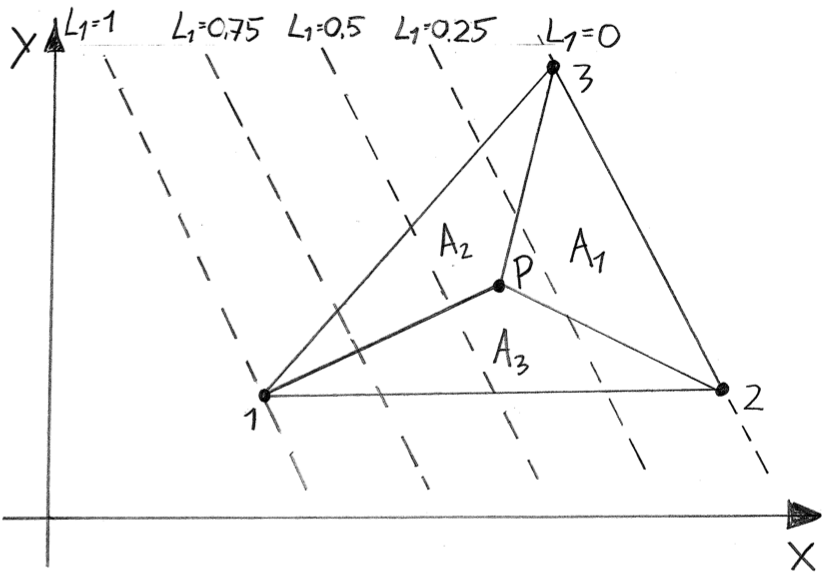 Y
L₁=1 L₁=0,75 L₁=0,5 L₁=0.25 L₁=0
3
A₂ A₁
P
A₃
1 2
X